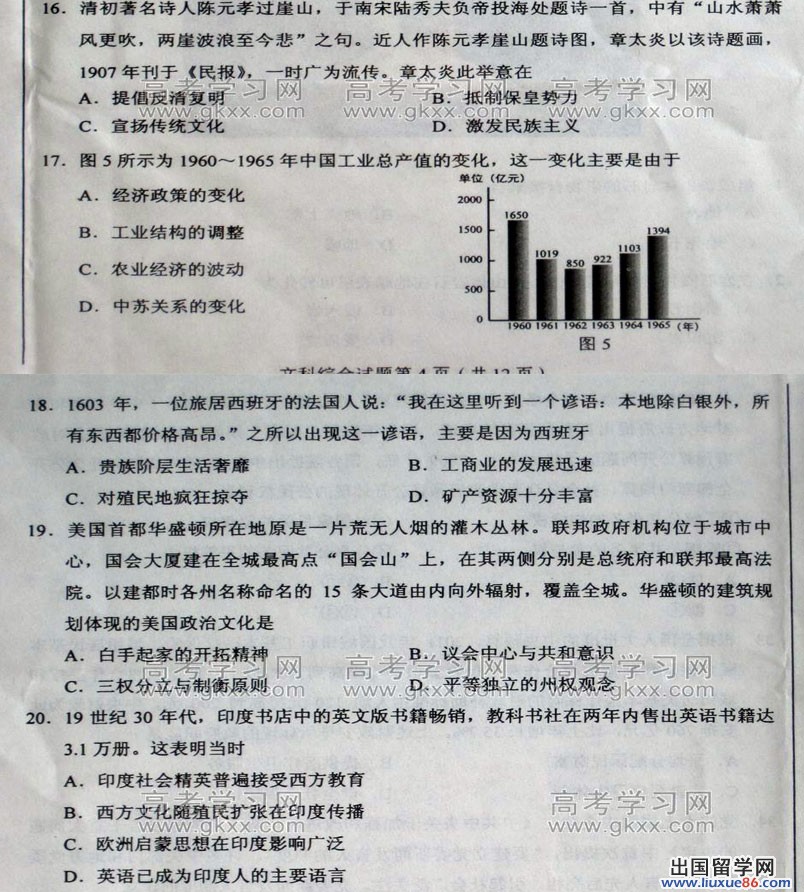 16．清初著名诗人陈元孝过崖山，于南宋陆秀夫负帝投海处题诗一首，中有“山水萧萧
风更吹，两崖波浪至今悲”之句。近人作陈元孝崖山题诗图，章太炎以该诗题画，
1907年刊于《民报》，一时广为流传。章太炎此举意在
A．提倡反清复明 B．抵制保皇势力
C．宣扬传统文化 D．激发民族主义
高考学习网 高考学习网
www.gkxx.com www.gkxx.com
17．图5所示为1960～1965年中国工业总产值的变化，这一变化主要是由于
A．经济政策的变化
B．工业结构的调整
C．农业经济的波动
D．中苏关系的变化
单位（亿元）
2000
1500
1000
500
0
1650
1019
850
922
1103
1394
1960 1961 1962 1963 1964 1965（年）
图5
文科综合试题第4页（共12页）
18．1603年，一位旅居西班牙的法国人说：“我在这里听到一个谚语：本地除白银外，所
有东西都价格高昂。”之所以出现这一谚语，主要是因为西班牙
A．贵族阶层生活奢靡 B．工商业的发展迅速
C．对殖民地疯狂掠夺 D．矿产资源十分丰富
19．美国首都华盛顿所在地原是一片荒无人烟的灌木丛林。联邦政府机构位于城市中
心，国会大厦建在全城最高点“国会山”上，在其两侧分别是总统府和联邦最高法
院。以建都时各州名称命名的15条大道由内向外辐射，覆盖全城。华盛顿的建筑规
划体现的美国政治文化是
A．白手起家的开拓精神 B．议会中心与共和意识
C．三权分立与制衡原则 D．平等独立的州权观念
高考学习网 高考学习网
www.gkxx.com www.gkxx.com
20．19世纪30年代，印度书店中的英文版书籍畅销，教科书社在两年内售出英语书籍达
3.1万册。这表明当时
A．印度社会精英普遍接受西方教育
B．西方文化随殖民扩张在印度传播
C．欧洲启蒙思想在印度影响广泛
D．英语已成为印度人的主要语言
高考学习网 高考学习网
www.gkxx.com www.gkxx.com
出国留学网
www.liuxue86.com